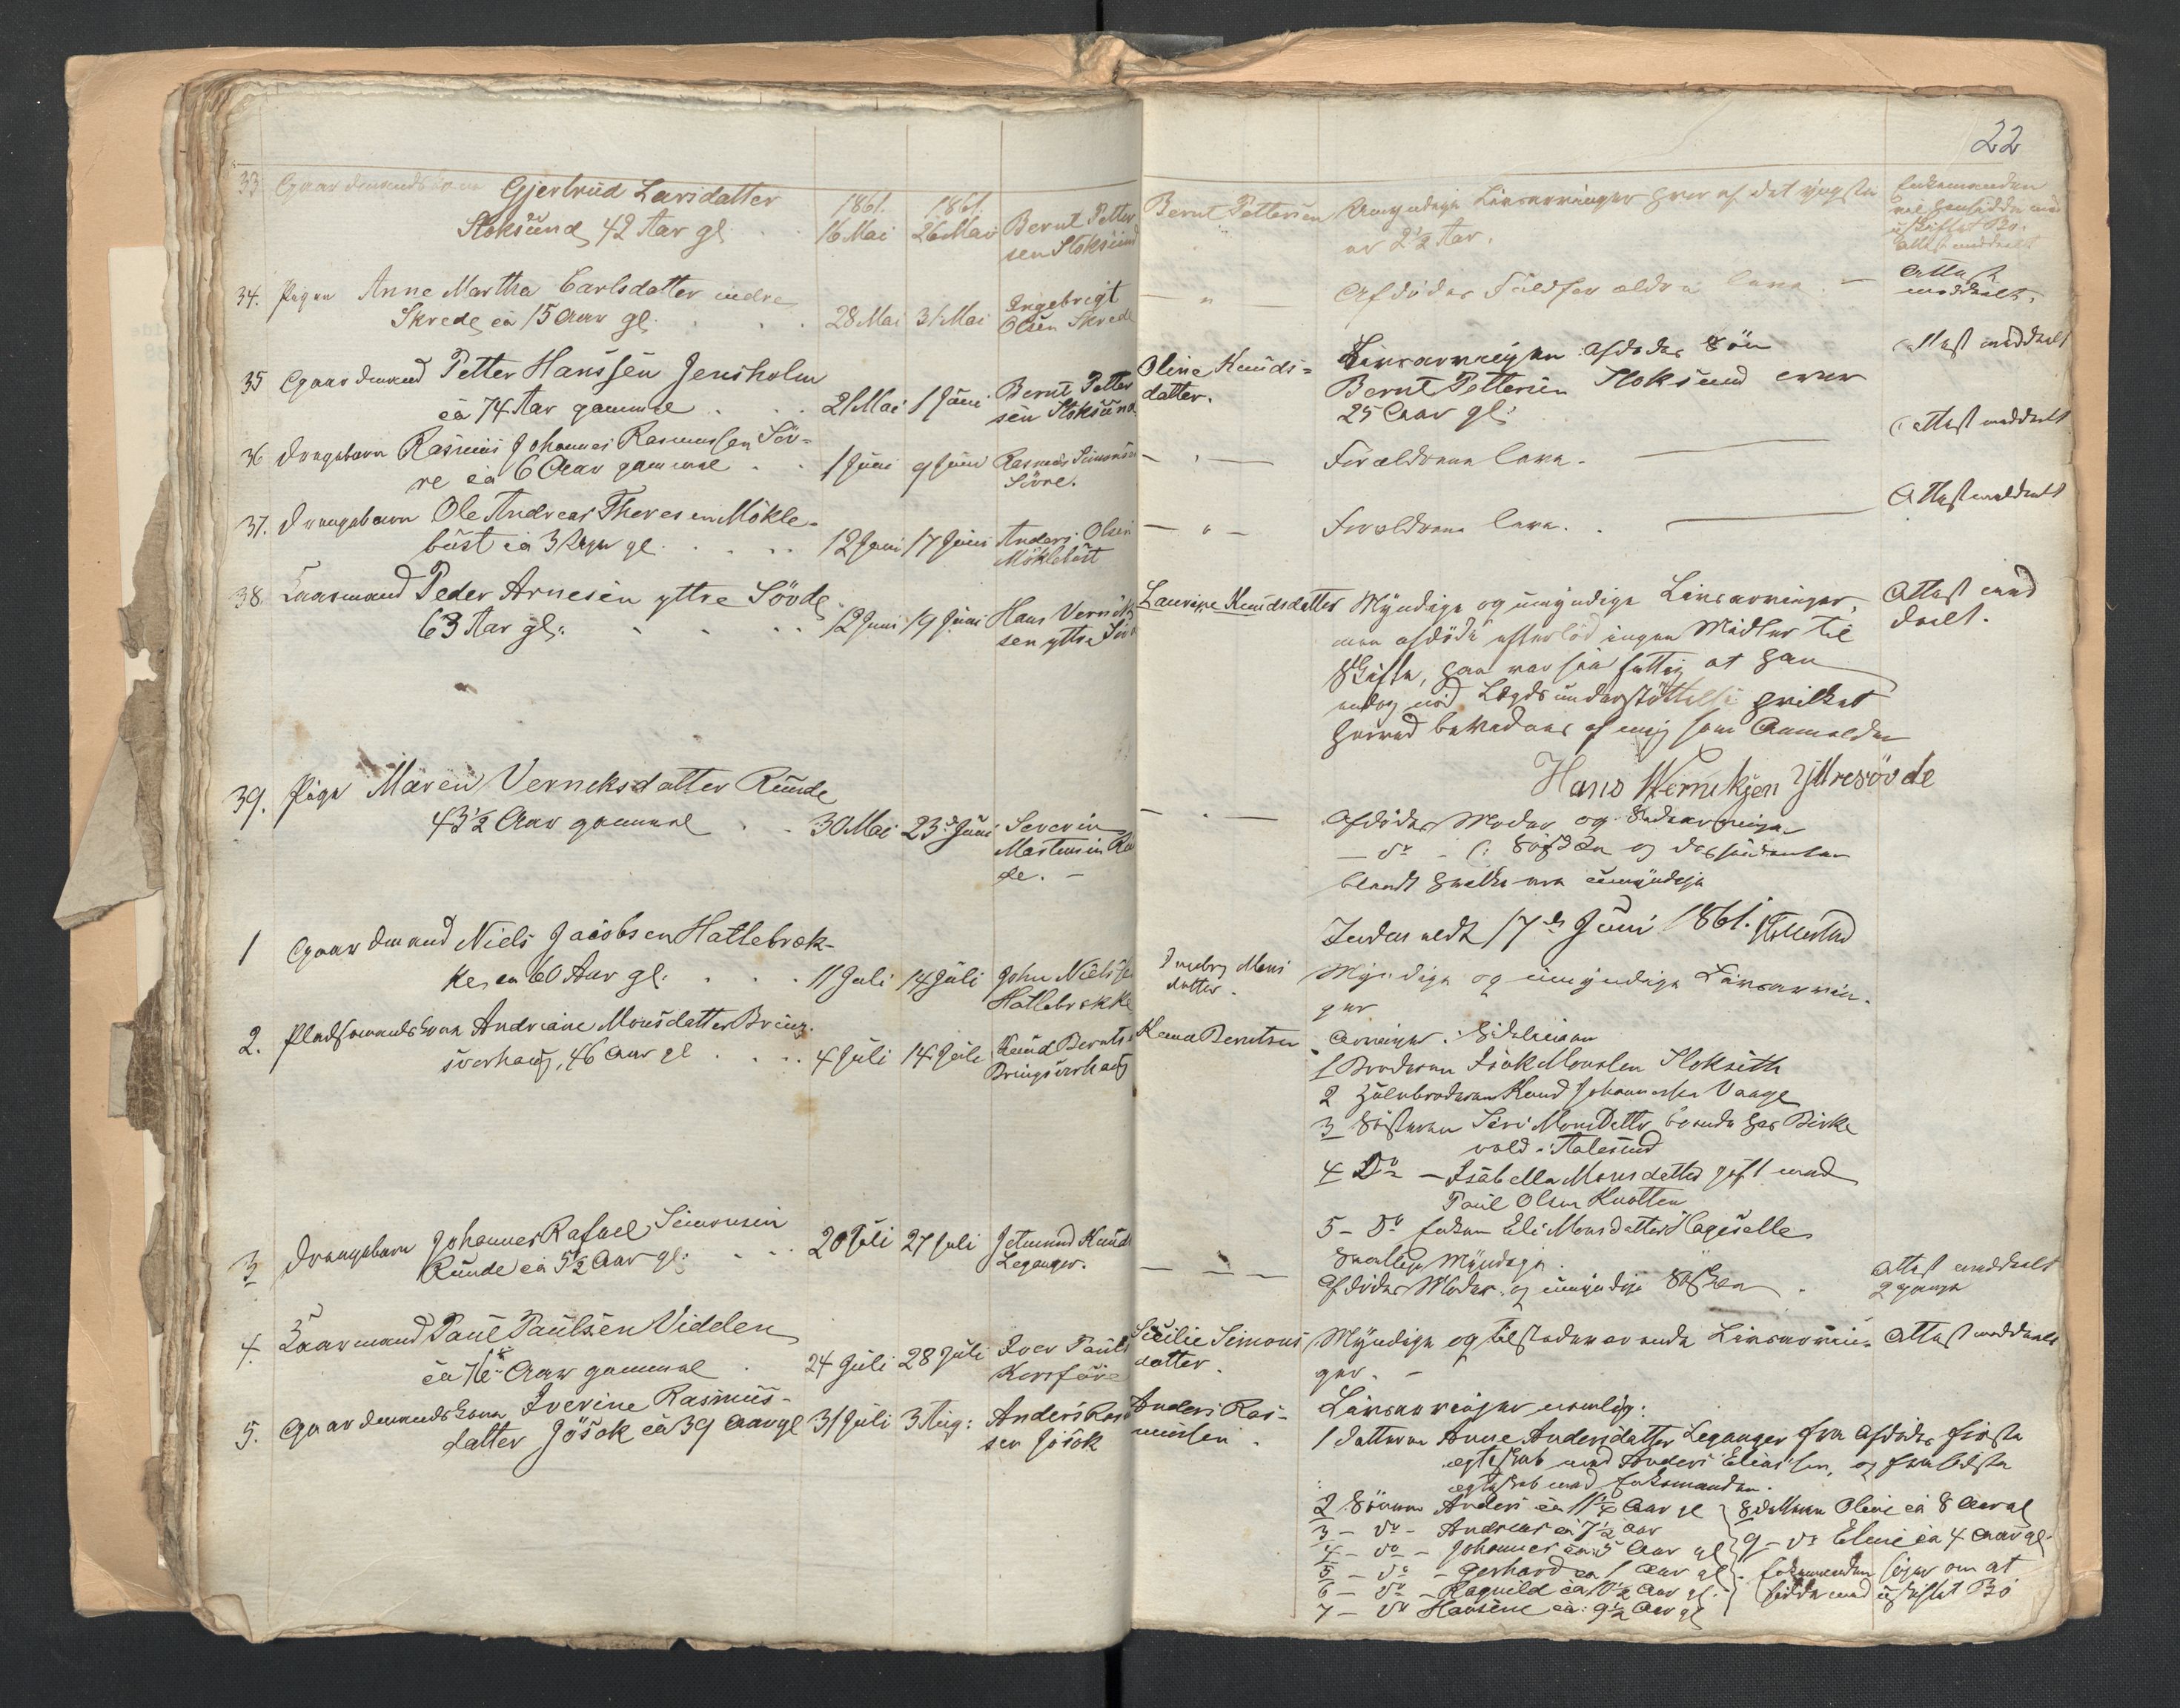 22
33 Gaardmandskone Gjertrud Larsdatter
Stoksund, 42 Aar gl.
1861. 16 Mai
1861. 26 Mai
Bernt Petter
sen Stoksund
Bernt Pettersen
Umyndige Livsarvinger hvoraf det yngste
er 2½ Aar.
Enkemanden
uskiftet Bo.
Attest meddeelt
34. Pigen Anne Martha Carlsdatter indre
Skrede, ca 15 Aar gl.
28 Mai
31 Mai
Ingebrigt
Olsen Skrede
— "
Afdødes Forældre leve. —
Attest
meddeelt.
35 Gaardmand Petter Hanssen Jensholm
ca 74 Aar gammel
21 Mai
1 Juni
Bernt Petter
sen Stoksund
Oline Knuds=
datter.
Livsarvingen: Afdødes Søn
Bernt Pettersen Stoksund over
25 Aar gl:
Attest meddeelt
36 Drengebarn Rasmus Johannes Rasmussen Söv=
re ca 6 Aar gammel
1 Juni
9 Juni
Rasmus Simonsen
Sövre.
— " —
Forældrene leve. —
Attest meddeelt
37. Drengebarn Ole Andreas Theresen Mökle=
bust ca 3 Uger gl.
12 Juni
17 Juni
Anders Olsen
Möklebust
— " —
Forældrene leve.
Attest meddeelt
38. Kaarmand Peder Arnesen yttre Sövde
63 Aar gl:
12 Juni
19 Juni
Hans Verniks
sen yttre Söv
Laurine Knudsdatter
Myndige og umyndige Livsarvinger,
men afdøde efterlod ingen Midler til
Skifte, han var saa fattig at han
endog nød Lægdsunderstøttelse hvilket
herved bevidnes af mig som Anmelder
Hans Werniksen Yttresövde
Attest med
deelt.
39. Pige Maren Verneksdatter Runde
43½ Aar gammel
30 Mai
23de Juni
Severin
Martensen Ru
de. —
— " —
Afdødes Moder og Sødskende
— do - (: Søskende og
blandt hvilke ere umyndige
Indsendt 17de Juni 1861.
1 Gaardmand Niels Jacobsen Hattlebrek-
ke, ca 60 Aar gl:
11 Juli
14 Juli
John Nielsse
Hatlebrekke
Mons
datter.
Myndige og umyndige Livsarvin-
ger
2. Pladsmandskone Andriane Monsdatter Bring-
sverhaug, 46 Aar gl
4 Juli
14 Juli
Knud Bernts
Bringsverhaug
Knud Berntsen
Arvinger:
1 Broderen Isak Monssen Stokseth
2 Halvbroderen Knud Johannessen Vaage
3 Søsteren Siri Monsdatter boende hos Birke
vold i Aalesund
4 Do — Isabella Monsdatter gift med
Paul Olsen Knotten
5 — Do Enken Eli Monsdatter Hageselle
Samtlige Myndige.
3 Drengebarn Johannes Rafael Simonsen
Runde ca 5½ Aar gl:
20 Juli
27 Juli
Jetmund Knuds
Leganger.
— — —
Afdødes Moder og umyndige Søskende.
Attest meddeelt
2 gange
4. Kaarmand Paul Paulsen Vidden
ca 76 Aar gammel
24 Juli
28 Juli
Iver Pauls
Korsfure
Sicilie Simons
datter.
Myndige og tilstedeværende Livsarvin-
ger. —
Attest meddeelt
5. Gaardmandskone Iverine Rasmus-
datter Jösok ca 39 Aar gl
31 Juli
3 Aug:
Anders Ras
sen Jösok
Anders Ras-
mussen.
Livsarvinger nemlig:
1 Datteren Anne Andersdatter Leganger fra Afdødes første
ægteskab med Anders Eliassen, og fra sidste
ægteskab med Enkemanden.
2 Sönnen Anders ca 11½ Aar gl
3 — do - Andreas ca 7½ Aar
4 — do — Johannes ca 5 Aar gl
5 — do — Gerhard ca 1 Aar gl
6 — do — Ragnild ca 10½ Aar gl.
7 — do Hansine ca: 9½ Aar gl
8 datteren Oline ca 8 Aar gl
9 — do Eline ca 4 Aar gl.
Enkemanden søger om at
sidde med uskiftet Bo